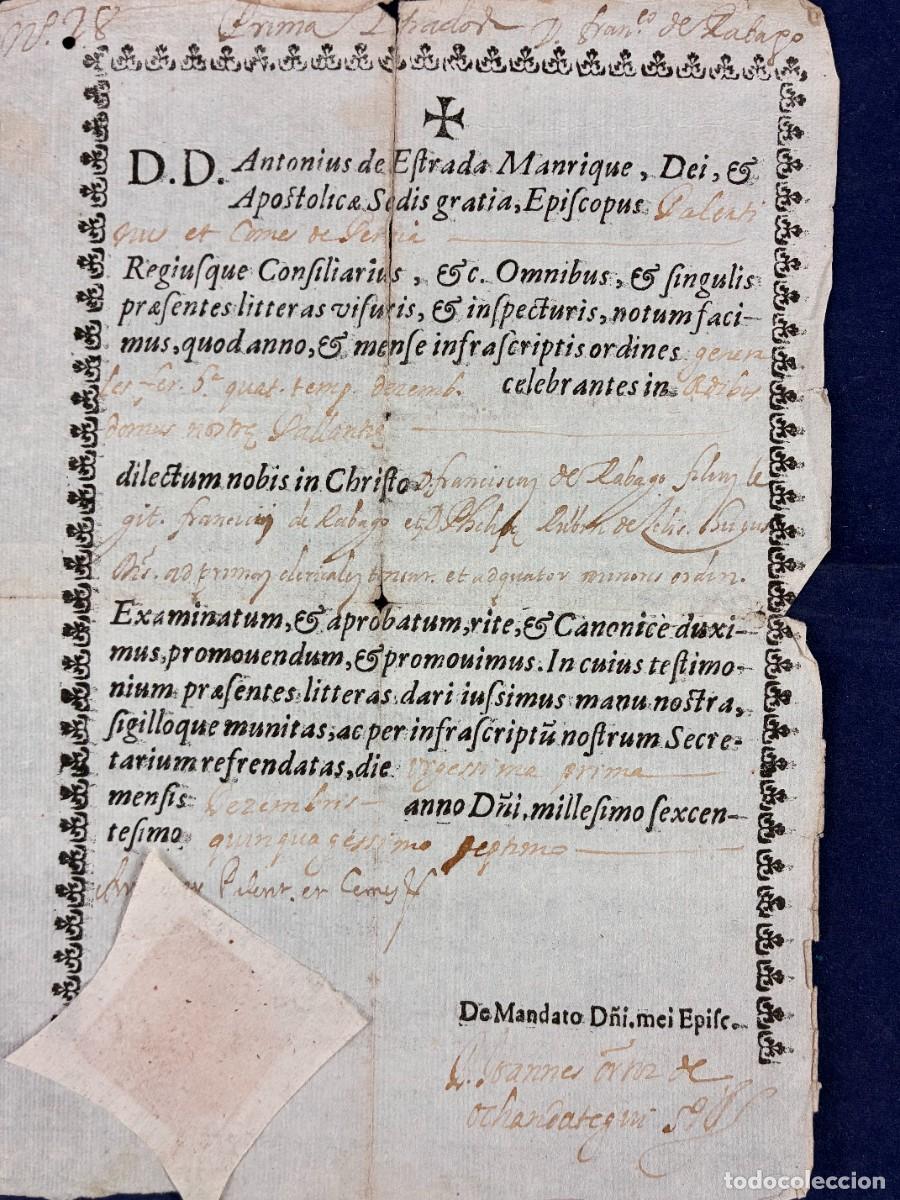 Nº. 28 Prima D. franco. de Rabago
D.D. Antonius de Eſtrada Manrique, Dei, &
Apoſtolicæ Sedis gratia, Epiſcopus Palenti
nus et Comes de Pernia
Regiuſque Conſiliarius, &c. Omnibus, & ſingulis
præſentes litteras viſuris, & inſpecturis, notum faci-
mus, quod anno, & menſe infraſcriptis ordines genera
les fer. 5ª. quat. temp. dezemb. celebrantes in Ædibus
domus nostrę Pallantię
dilectum nobis in Chriſto D. franciscum de Rabago filium le
git. francisci de Rabago et D. Phelipę de Zelis. huius
ad primam clericalem tonsur. et ad quator minoris ordin.
Examinatum, & aprobatum, rite, & Canonice duxi-
mus, promouendum, & promouimus. In cuius teſtimo-
nium præſentes litteras dari iuſsimus manu noſtra,
ſigilloque munitas, ac per infraſcriptũ noſtrum Secre-
tarium refrendatas, die vigessima prima
menſis Dezembris anno Dñi, milleſimo ſexcen-
teſimo quinquagessimo septimo
Palent. et Comes
De Mandato Dñi. mei Epiſc.
D. Joannes Ortiz de
ochandategui Sº
todocoleccion